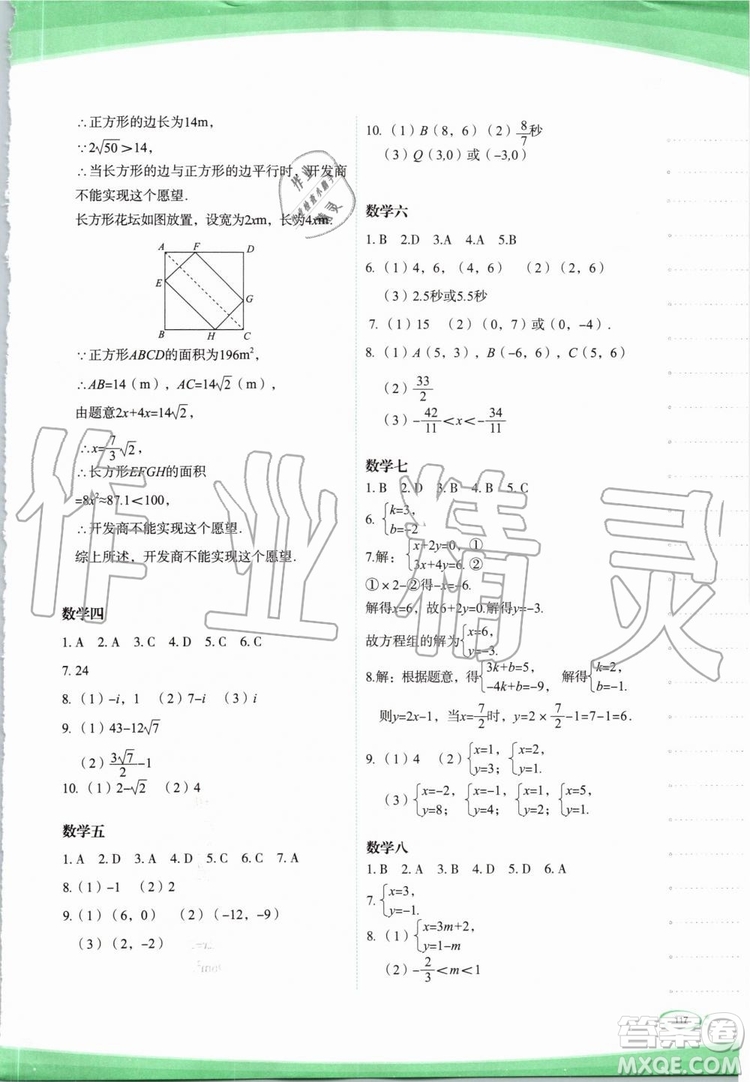 ∴正方形的边长为14m,
∵2√50＞14,
∴当长方形的边与正方形的边平行时，开发商
不能实现这个愿望.
长方形花坛如图放置，设宽为2xm，长为4xm.
A F D
E
G
B H C
∵正方形ABCD的面积为196m²,
∴AB=14（m），AC=14√2（m），
由题意2x+4x=14√2,
∴x=7/3√2,
∴长方形EFGH的面积
=8x²≈87.1＜100,
∴开发商不能实现这个愿望.
综上所述，开发商不能实现这个愿望.
数学四
1. A 2. A 3. C 4. D 5. C 6. C
7. 24
8.（1）-i，1 （2）7-i （3）i
9.（1）43-12√7
（2）3√7/2-1
10.（1）2-√2 （2）4
数学五
1. A 2. D 3. D 4. D 5. C 6. C 7. A
8.（1）-1 （2）2
9.（1）（6，0） （2）（-12，-9）
（3）（2，-2）
10.（1）B（8，6）（2）8/7秒
（3）Q（3,0）或（-3,0）
数学六
1. B 2.D 3.A 4.A 5.B
6.（1）4，6，（4，6） （2）（2，6）
（3）2.5秒或5.5秒
7.（1）15 （2）（0，7）或（0，-4）.
8.（1）A（5，3），B（-6，6），C（5，6）
（2）33/2
（3）-42/11＜x＜-34/11
数学七
1. B 2. D 3. D 4. B 5. C
6. {k=3,
b=-2
7.解：{x+2y=0，①
3x+4y=6. ②
①×2-②得-x=-6.
解得x=6，故6+2y=0.解得y=-3.
故方程组的解为{x=6,
y=-3.
8.解：根据题意，得{3k+b=5, 解得{k=2,
-4k+b=-9， b=-1.
则y=2x-1，当x=7/2时，y=2×7/2-1=7-1=6.
9.（1）4 （2）{x=1, {x=2,
y=3; y=1.
（3）{x=-2, {x=-1, {x=1,
y=8; y=4; y=2.
数学八
1. B 2. A 3. C 4. D 5. D 6. A
7. {x=3,
y=1.
8.（1）{x=3m+2,
y=1-m
（2）-2/3＜m＜1
117
作业精灵
答案圈
MXQE.COM